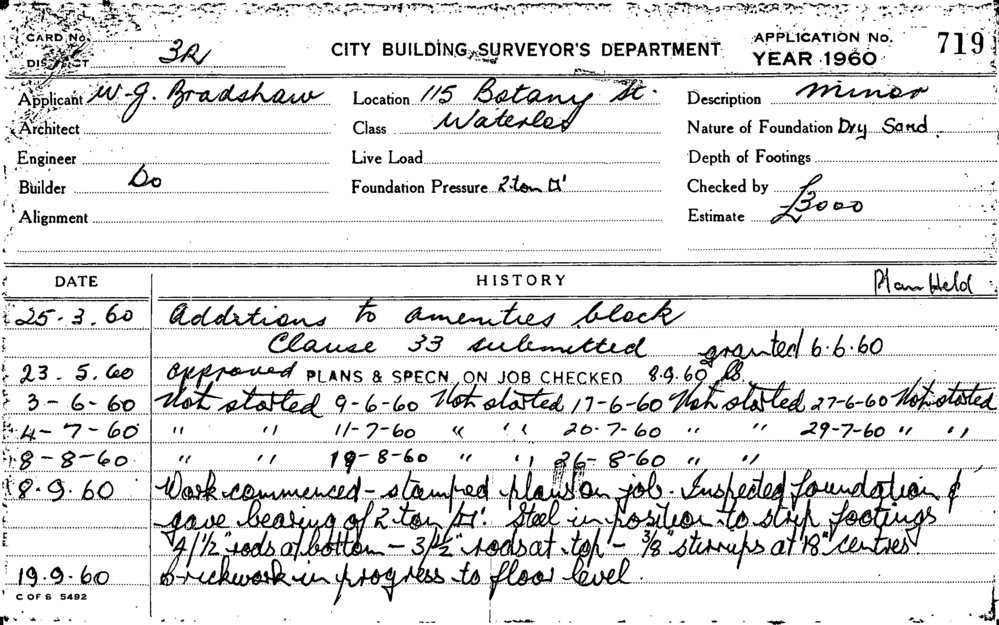 CARD No.
DISTRICT 3R
CITY BUILDING SURVEYOR'S DEPARTMENT
APPLICATION No. 719
YEAR 1960
Applicant W. J. Bradshaw
Location 115 Botany St.
Description Minor
Architect
Class Waterloo
Nature of Foundation Dry Sand.
Engineer
Live Load
Depth of Footings
Builder Do
Foundation Pressure 2 ton □'
Checked by
Alignment
Estimate £3000
DATE HISTORY Plan Held
25.3.60 Additions to amenities block
Clause 33 submitted granted 6.6.60
23.5.60 approved PLANS & SPECN. ON JOB CHECKED 8.9.60
3-6-60 Not started 9-6-60 Not started 17-6-60 Not started 27-6-60 Not started
4-7-60 " " 11-7-60 " " 20-7-60 " " 29-7-60 " "
8-8-60 " " 19-8-60 " " 26-8-60 " "
8.9.60 Work commenced - stamped plans on job. Inspected foundation &
gave bearing of 2 ton □'. Steel in position to strip footings
4/½" rods at bottom - 3/½" rods at top - 3/8" stirrups at 18" centres
19.9.60 brickwork in progress to floor level.
C OF S 5492